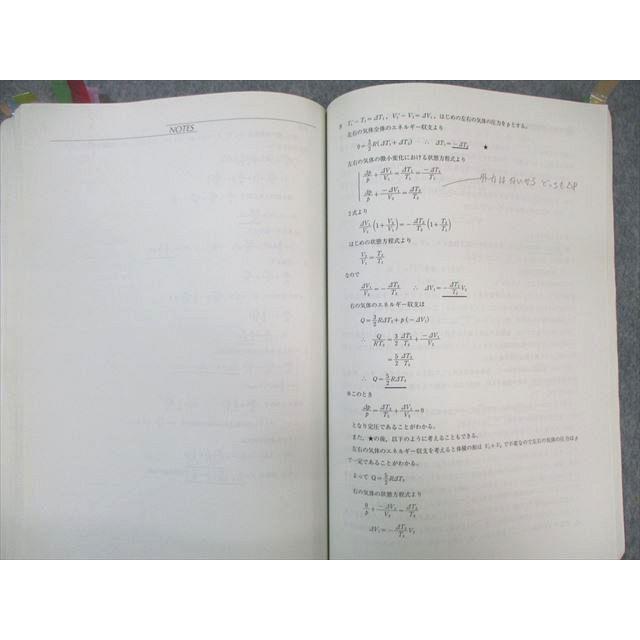 NOTES
9 T₁′−T₁=ΔT₁, V₁′−V₁=ΔV₁, はじめの左右の気体の圧力をpとする。
左右の気体全体のエネルギー収支より
0=3/2 R(ΔT₁+ΔT₂) ∴ ΔT₁=−ΔT₂ ★
左右の気体の微小変化における状態方程式より
Δp/p+ΔV₁/V₁=ΔT₁/T₁=−ΔT₂/T₁
Δp/p+−ΔV₁/V₂=ΔT₂/T₂
2式より
ΔV₁/V₁(1+V₁/V₂)=−ΔT₂/T₂(1+T₂/T₁)
はじめの状態方程式より
V₂/V₁=T₂/T₁
なので
ΔV₁/V₂=−ΔT₂/T₂ ∴ ΔV₁=−ΔT₂/T₂ V₂
右の気体のエネルギー収支は
Q=3/2 RΔT₂+p(−ΔV₁)
∴ Q/RT₂=3/2 ΔT₂/T₂+−ΔV₁/V₂
=5/2 ΔT₂/T₂
∴ Q=5/2 RΔT₂
※このとき
Δp/p=ΔT₂/T₂+ΔV₁/V₂=0
となり定圧であることがわかる。
また, ★の後, 以下のように考えることもできる。
左右の気体のエネルギー収支を考えると体積の和は V₁+V₂ で不変なので左右の気体の圧力は p
で一定であることがわかる。
よって Q=5/2 RΔT₂
右の気体の状態方程式より
0/p+−ΔV₁/V₂=ΔT₂/T₂
ΔV₁=−ΔT₂/T₂ V₂